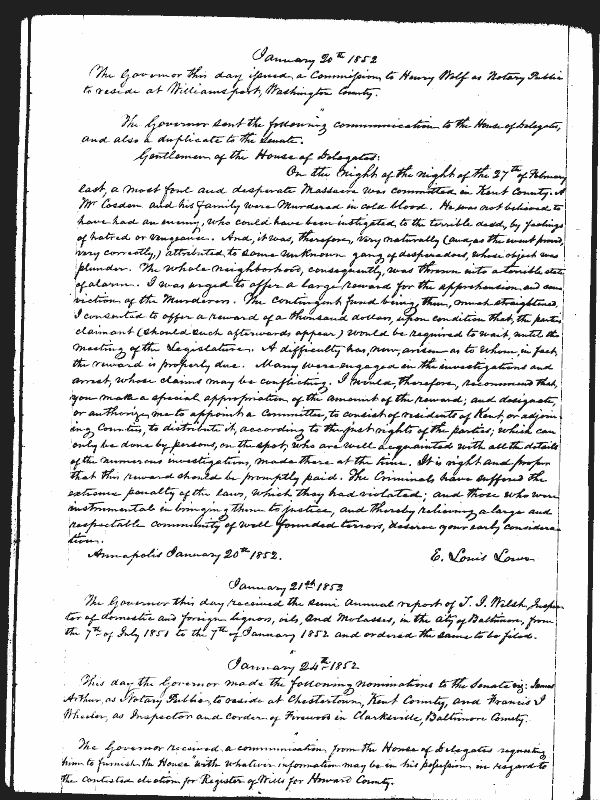 January 20th 1852
The Governor this day issued a Commission to Henry Wolf as Notary Public
to reside at Williamsport, Washington County.
The Governor sent the following communication to the House of Delegates,
and also a duplicate to the Senate.
Gentlemen of the House of Delegates:
On the night of the night of the 27th of February
last, a most foul and desperate Massacre was committed in Kent County. A
Mr Cosden and his family were Murdered in cold blood. He was not believed to
have had an enemy, who could have been instigated to the terrible deed, by feelings
of hatred or vengeance. And, it was, therefore, very naturally (and, as the event proved,
very correctly,) attributed to some unknown gang of desperadoes, whose object was
plunder. The whole neighborhood, consequently, was thrown into a terrible state
of alarm. I was urged to offer a large reward for the apprehension and con
viction of the Murderers. The Contingent fund being, then, much straightened,
I consented to offer a reward of a thousand dollars, upon condition that, the parties
claimant (should such afterwards appear) would be required to wait, until the
meeting of the Legislature. A difficulty has, now, arisen as to whom, in fact,
the reward is properly due. Many were engaged in the investigations and
arrest, whose claims may be conflicting. I would, therefore, recommend that,
you make a special appropriation of the amount of the reward; and designate,
or authorize me to appoint a Committee, to consist of residents of Kent, or adjoin
ing Counties, to distribute it, according to the just rights of the parties; which can
only be done by persons, on the spot, who are well acquainted with all the details
of the numerous investigations, made there at the time. It is right and proper
that this reward should be promptly paid. The Criminals have suffered the
extreme penalty of the laws, which they had violated; and those who were
instrumental in bringing them to justice, and thereby relieving a large and
respectable community of well founded terrors, deserve your early considera
tion.
Annapolis January 20th 1852. E. Louis Lowe
January 21st 1852
The Governor this day received the semi annual report of T. J. Welsh, Inspec
tor of domestic and foreign liquors, oils, and Molasses, in the city of Baltimore, from
the 7th of July 1851 to the 7th of January 1852 and ordered the same to be filed.
January 24th 1852
This day the Governor made the following nominations to the Senate viz: James
Arthur, as Notary Public, to reside at Chestertown, Kent County, and Francis J
Wheeler, as Inspector and Corder of Firewood in Clarksville, Baltimore County.
The Governor received a communication from the House of Delegates requesting
him to furnish the House "with whatever information may be in his possession in regard to
the contested election for Register of Wills for Howard County.